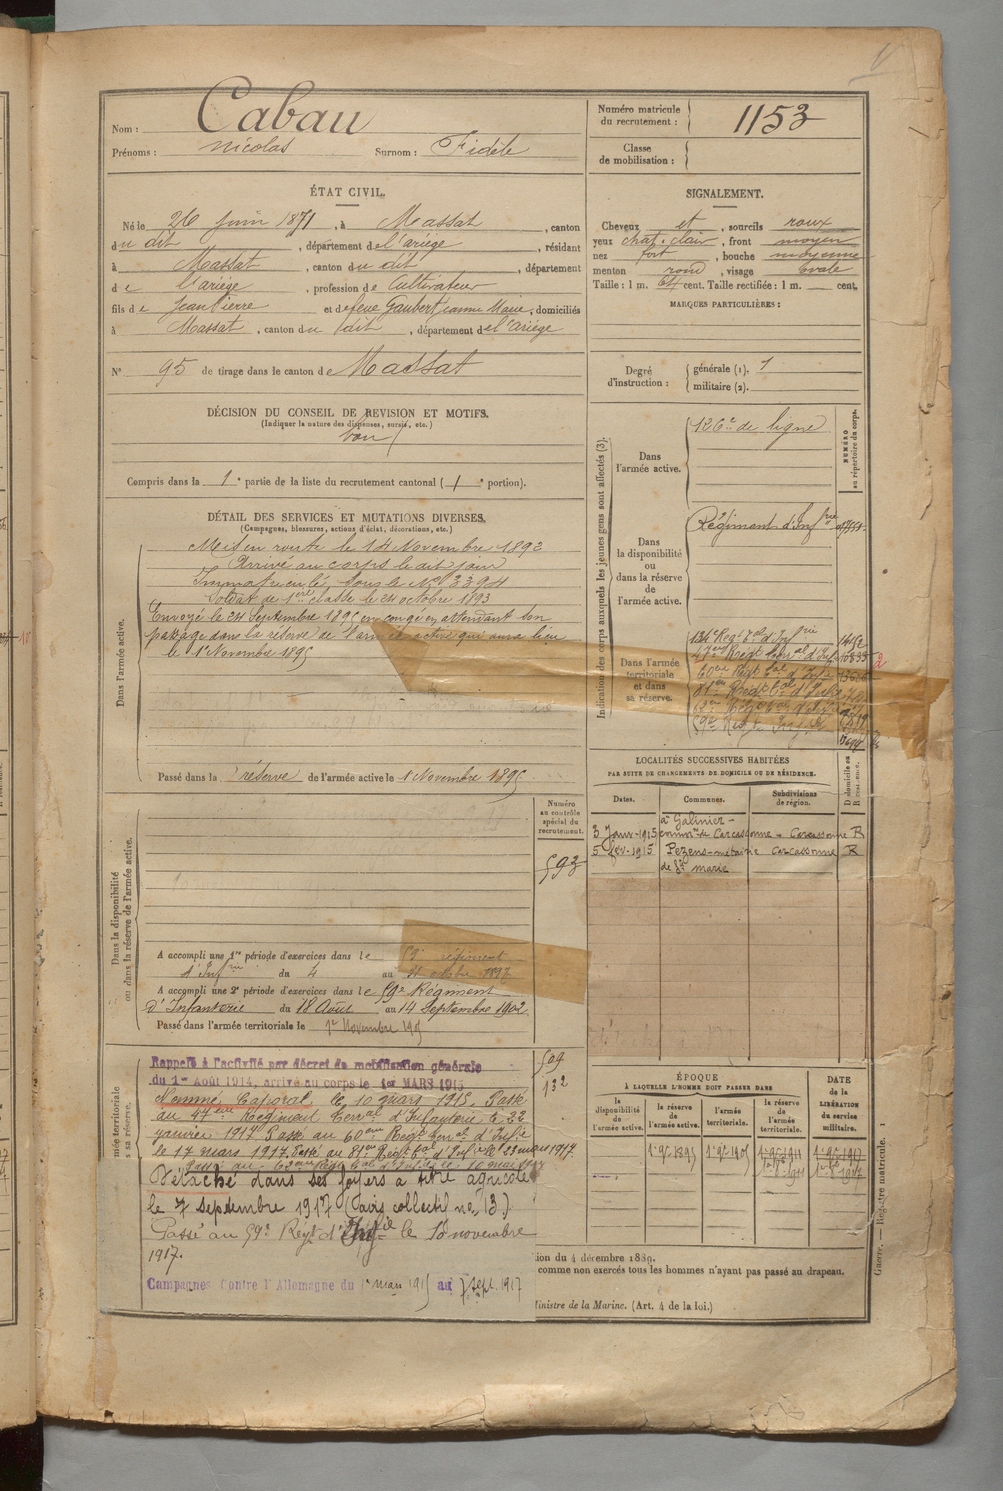 Nom : Cabau
Prénoms : Nicolas Surnom : Fidèle
Numéro matricule du recrutement : 1153
Classe de mobilisation :
ÉTAT CIVIL.
Né le 26 juin 1871, à Massat, canton
du dit, département de l'ariège, résidant
à Massat, canton du dit, département
de l'ariège, profession de Cultivateur
fils de Jean Pierre et de feue Gaubert Jeanne Marie, domiciliés
à Massat, canton du dit, département de l'ariège
N° 95 de tirage dans le canton de Massat
SIGNALEMENT.
Cheveux et, sourcils roux
yeux chat. clair, front moyen
nez fort, bouche moyenne
menton rond, visage ovale
Taille : 1 m. 64 cent. Taille rectifiée : 1 m. cent.
MARQUES PARTICULIÈRES :
Degré d'instruction : générale (1). 1
militaire (2).
DÉCISION DU CONSEIL DE REVISION ET MOTIFS.
(Indiquer la nature des dispenses, sursis, etc.)
bon
Compris dans la 1e partie de la liste du recrutement cantonal (1e portion).
DÉTAIL DES SERVICES ET MUTATIONS DIVERSES.
(Campagnes, blessures, actions d'éclat, décorations, etc.)
Dans l'armée active.
Mis en route le 14 Novembre 1892
Arrivé au corps le dit jour
Immatriculé sous le N° 3394
Soldat de 1ère classe le 24 octobre 1893
Envoyé le 24 Septembre 1895 en congé en attendant son
passage dans la réserve de l'armée active qui aura lieu
le 1er Novembre 1895
Passé dans la réserve de l'armée active le 1 Novembre 1895
Indication des corps auxquels les jeunes gens sont affectés (3).
NUMÉRO au répertoire du corps.
Dans l'armée active.
126e de ligne
Dans la disponibilité ou dans la réserve de l'armée active.
Régiment d'Infrie
Dans l'armée territoriale et dans sa réserve.
134e Regt Tal d'Infrie
47eme Régt terral d'Inf
60eme Régt Tal d'Infie
81em Régt Tal d'Infie
62em Régt
59e Regt Infie
LOCALITÉS SUCCESSIVES HABITÉES
PAR SUITE DE CHANGEMENTS DE DOMICILE OU DE RÉSIDENCE.
Dates. Communes. Subdivisions de région. D domicile ou R résidence.
à Galinier -
3 Janv-1915 comme de Carcassonne - Carcassonne R
5 fev-1915 Pezens-métairie Carcassonne R
de Ste marie
Numéro au contrôle spécial du recrutement.
593
Dans la disponibilité ou dans la réserve de l'armée active.
A accompli une 1re période d'exercices dans le 59e régiment
d'Infrie du 4 au 31 octobre 1897
A accompli une 2e période d'exercices dans le 59e Régiment
D'Infanterie du 18 Août au 14 Septembre 1902
Passé dans l'armée territoriale le 1er Novembre 190
509
132
Rappelé à l'activité par décret de mobilisation générale
du 1er Août 1914, arrivé au corps le 1er MARS 1915
Nommé Caporal, le 10 mars 1915. Passé
au 47ème Régiment Terral d'Infanterie le 22
janvier 1917 Passé au 60em Régt Terral d'Infie
le 17 mars 1917. Passé au 81em Régt Tal d'Infie le 23 mars 1917
Détaché dans ses foyers à titre agricole
le 7 septembre 1917 (avis collectif no 13.)
Passé au 59e Régt d'Infie le 18 novembre
1917.
Campagnes Contre l'Allemagne du 1 mars 1915 au 7 sept. 1917
ÉPOQUE
À LAQUELLE L'HOMME DOIT PASSER DANS
la disponibilité de l'armée active. la réserve de l'armée active. l'armée territoriale. la réserve de l'armée territoriale. DATE DE LA LIBÉRATION du service militaire.
1er 9bre 1895 1er 9bre 1905 1er 9bre 1911 1er 9bre 1917
tion du 4 décembre 1889.
comme non exercés tous les hommes n'ayant pas passé au drapeau.
Ministre de la Marine. (Art. 4 de la loi.)
Guerre. — Registre matricule. 1